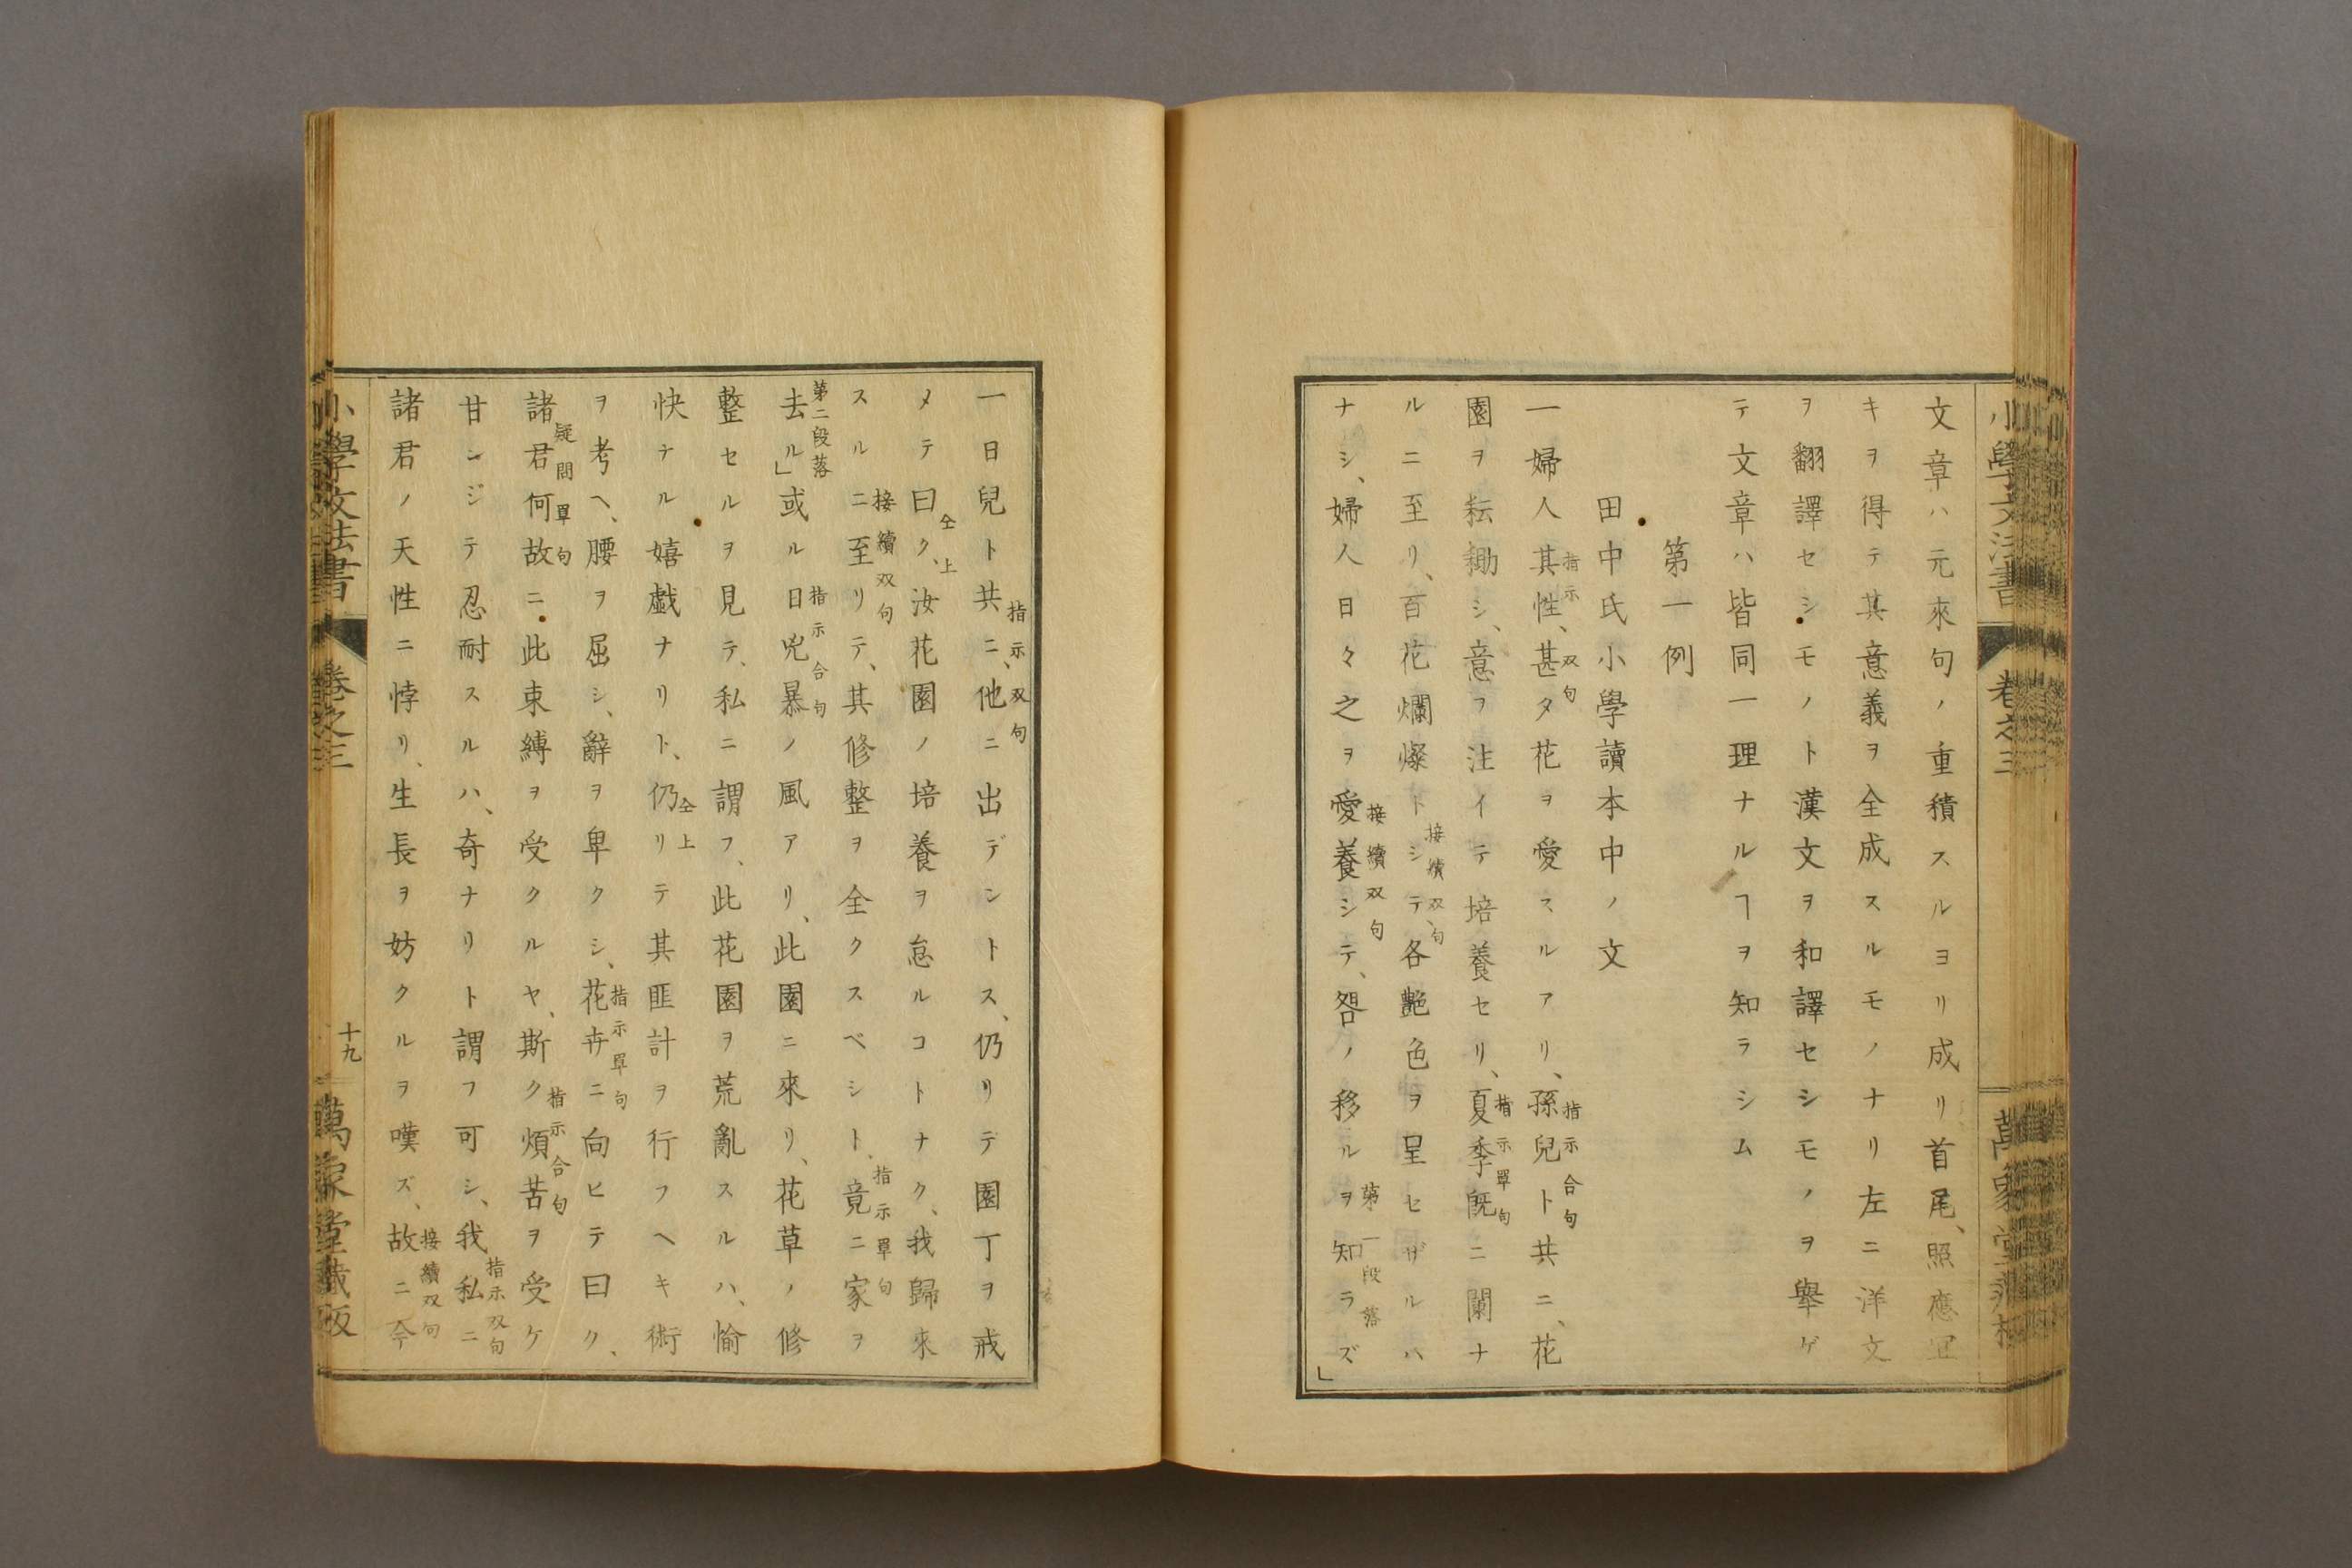 小學文法書 卷之三 萬象堂藏板
文章ハ元來句ノ重積スルヨリ成リ首尾、照應宜
キヲ得テ其意義ヲ全成スルモノナリ左ニ洋文
ヲ翻譯セシモノト漢文ヲ和譯セシモノヲ擧ゲ
テ文章ハ皆同一理ナルヿヲ知ラシム
第一例
田中氏小學讀本中ノ文
指示双句 指示合句
一婦人其性、甚タ花ヲ愛スルアリ、孫兒ト共ニ、花
指示單句
園ヲ耘耡シ、意ヲ注イテ培養セリ、夏季既ニ闌ナ
接續双句
ルニ至リ、百花爛燦トシテ、各艷色ヲ呈セザルハ
接續双句 第一段落
ナシ、婦人日々之ヲ愛養シテ、咎ノ移ルヲ知ラズ」
指示双句
一日兒ト共ニ、他ニ出デントス、仍リデ園丁ヲ戒
仝上
メテ曰ク、汝花園ノ培養ヲ怠ルコトナク、我歸來
接續双句 指示單句
スルニ至リテ、其修整ヲ全クスベシト、竟ニ家ヲ
第二段落 指示合句
去ル」或ル日兇暴ノ風アリ、此園ニ來リ、花草ノ修
整セルヲ見テ、私ニ謂フ、此花園ヲ荒亂スルハ、愉
仝上
快ナル嬉戯ナリト、仍リテ其匪計ヲ行フヘキ術
指示單句
ヲ考ヘ、腰ヲ屈シ、辭ヲ卑クシ、花卉ニ向ヒテ曰ク、
疑問單句 指示合句
諸君何故ニ此束縛ヲ受クルヤ、斯ク煩苦ヲ受ケ
指示双句
甘ンジテ忍耐スルハ、奇ナリト謂フ可シ、我私ニ
接續双句
諸君ノ天性ニ悖リ、生長ヲ妨クルヲ嘆ズ、故ニ今
小學文法書 卷之三 十九 萬象堂藏版